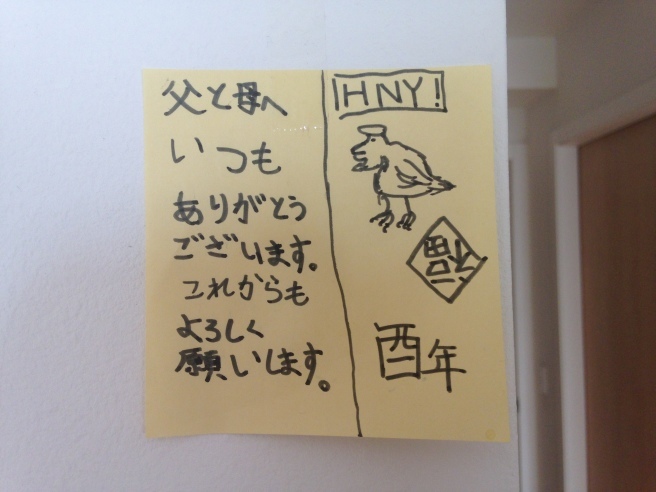 父と母へ
いつも
ありがとう
ございます。
これからも
よろしく
願いします。
HNY!
福
酉年